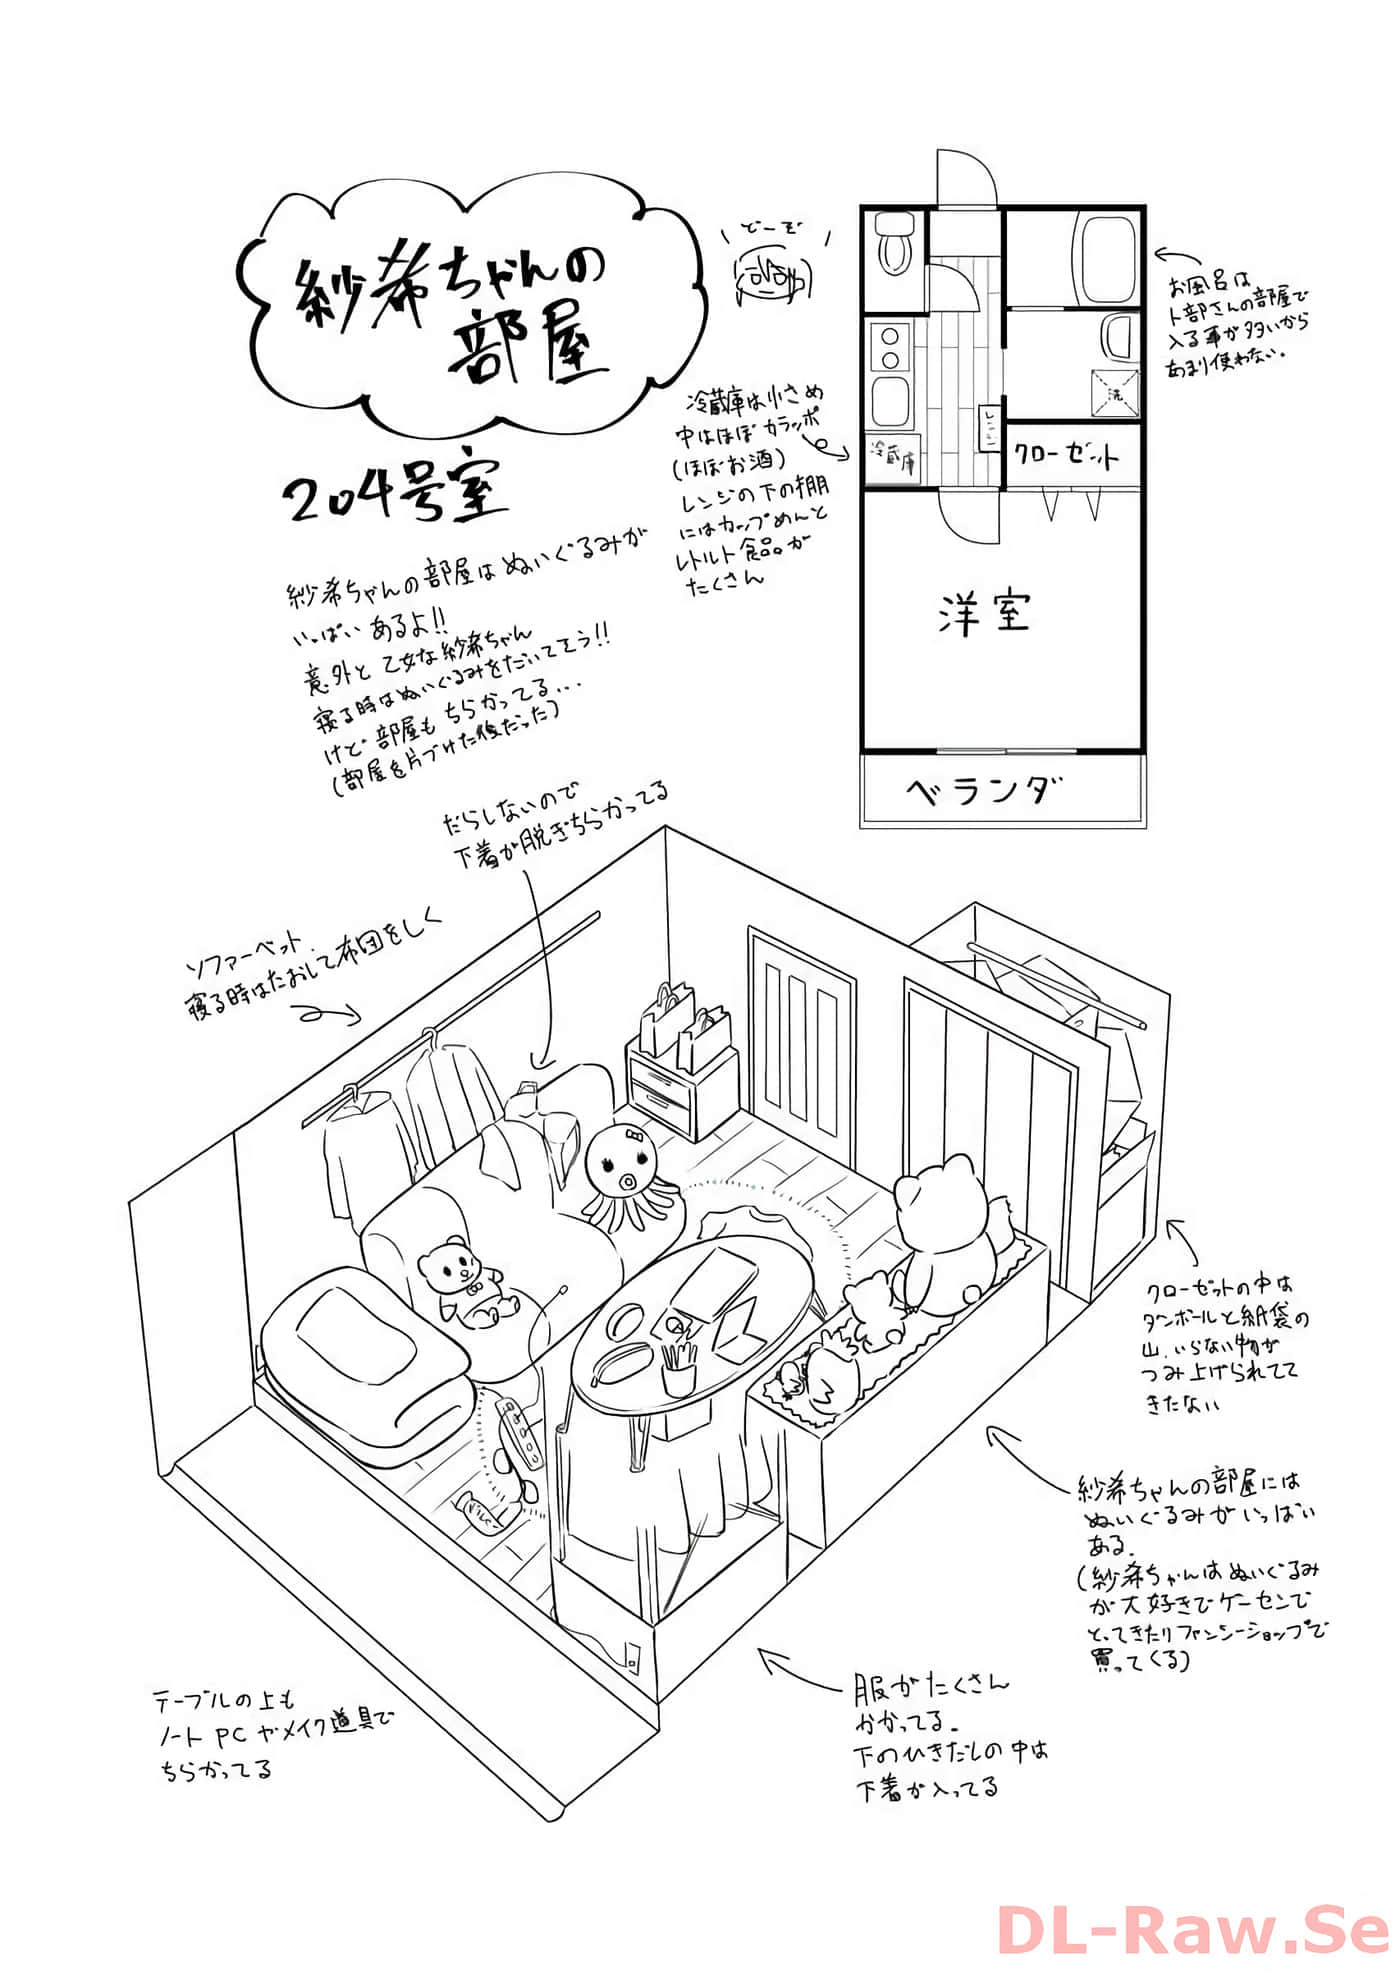 紗希ちゃんの
部屋
どーぞ
204号室
紗希ちゃんの部屋はぬいぐるみが
いっぱいあるよ!!
意外と乙女な紗希ちゃん
寝る時はぬいぐるみをだいてそう!!
けど部屋もちらかってる...
(部屋を片づけた後だった)
冷蔵庫は小さめ
中はほぼカラッポ
(ほぼお酒)
レンジの下の棚
にはカップめんと
レトルト食品が
たくさん
お風呂は
卜部さんの部屋で
入る事が多いから
あまり使わない。
洗
レンジ
冷蔵庫
クローゼット
洋室
ベランダ
だらしないので
下着が脱ぎちらかってる
ソファーベット
寝る時はたおして布団をしく
クローゼットの中は
ダンボールと紙袋の
山、いらない物が
つみ上げられてて
きたない
紗希ちゃんの部屋には
ぬいぐるみがいっぱい
ある。
(紗希ちゃんはぬいぐるみ
が大好きでゲーセンで
とってきたりファンシーショップで
買ってくる)
服がたくさん
かかってる。
下のひきだしの中は
下着が入ってる
テーブルの上も
ノートPCやメイク道具で
ちらかってる
DL-Raw.Se